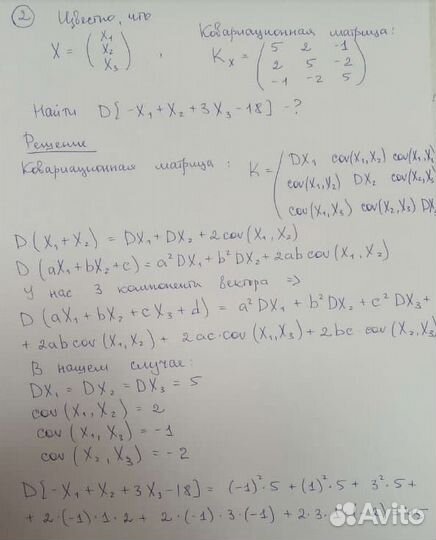 ② Известно, что
X = (X₁ X₂ X₃), Ковариационная матрица:
Kₓ = (5 2 -1
2 5 -2
-1 -2 5)
Найти D[-X₁ + X₂ + 3X₃ - 18] - ?
Решение
Ковариационная матрица: K = (DX₁ cov(X₁,X₂) cov(X₁,X
cov(X₁,X₂) DX₂ cov(X₂,X
cov(X₁,X₃) cov(X₂,X₃) DX
D(X₁+X₂) = DX₁ + DX₂ + 2cov(X₁,X₂)
D(aX₁+bX₂+c) = a²DX₁ + b²DX₂ + 2ab cov(X₁,X₂)
У нас 3 компоненты вектора =>
D(aX₁+bX₂+cX₃+d) = a²DX₁ + b²DX₂ + c²DX₃ +
+ 2ab cov(X₁,X₂) + 2ac·cov(X₁,X₃) + 2bc cov(X₂,X₃
В нашем случае:
DX₁ = DX₂ = DX₃ = 5
cov(X₁,X₂) = 2
cov(X₁,X₃) = -1
cov(X₂,X₃) = -2
D[-X₁ + X₂ + 3X₃ - 18] = (-1)²·5 + (1)²·5 + 3²·5 +
+ 2·(-1)·1·2 + 2·(-1)·3·(-1) + 2·3·
Avito